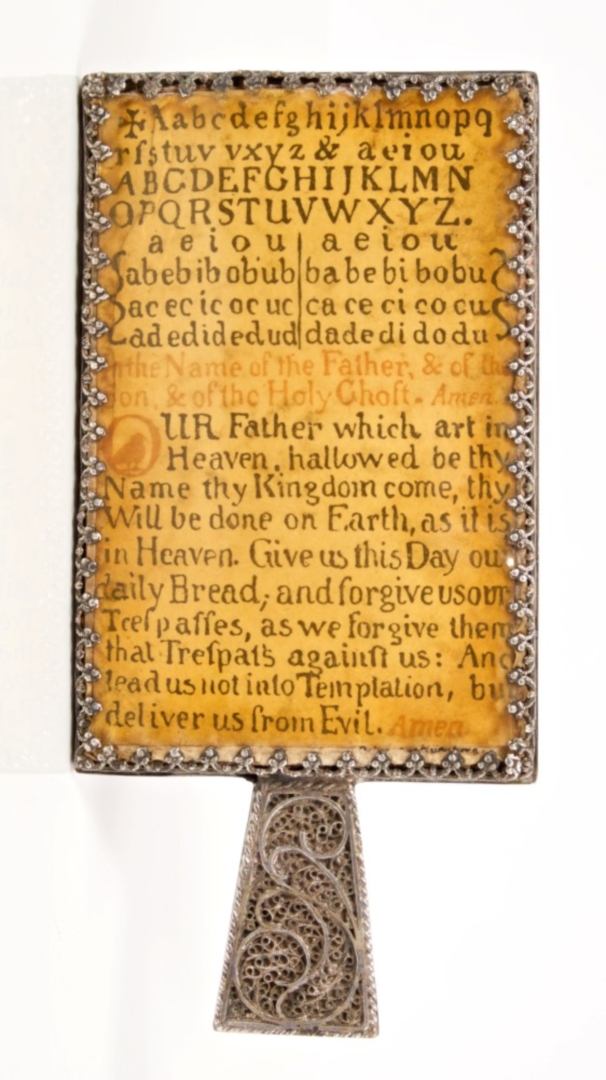 ✠Aabcdefghijklmnopq
rſstuv vxyz & aeiou
ABCDEFGHIJKLMN
OPQRSTUVWXYZ.
a e i o u | a e i o u
ab eb ib ob ub | ba be bi bo bu
ac ec ic oc uc | ca ce ci co cu
ad ed id ed ud | da de di do du
In the Name of the Father, & of the
Son, & of the Holy Ghoſt. Amen.
OUR Father which art in
Heaven, hallowed be thy
Name thy Kingdom come, thy
Will be done on Earth, as it is
in Heaven. Give us this Day our
daily Bread; and forgive us our
Treſpaſſes, as we forgive them
that Treſpaſs againſt us: And
lead us not into Temptation, but
deliver us from Evil. Amen